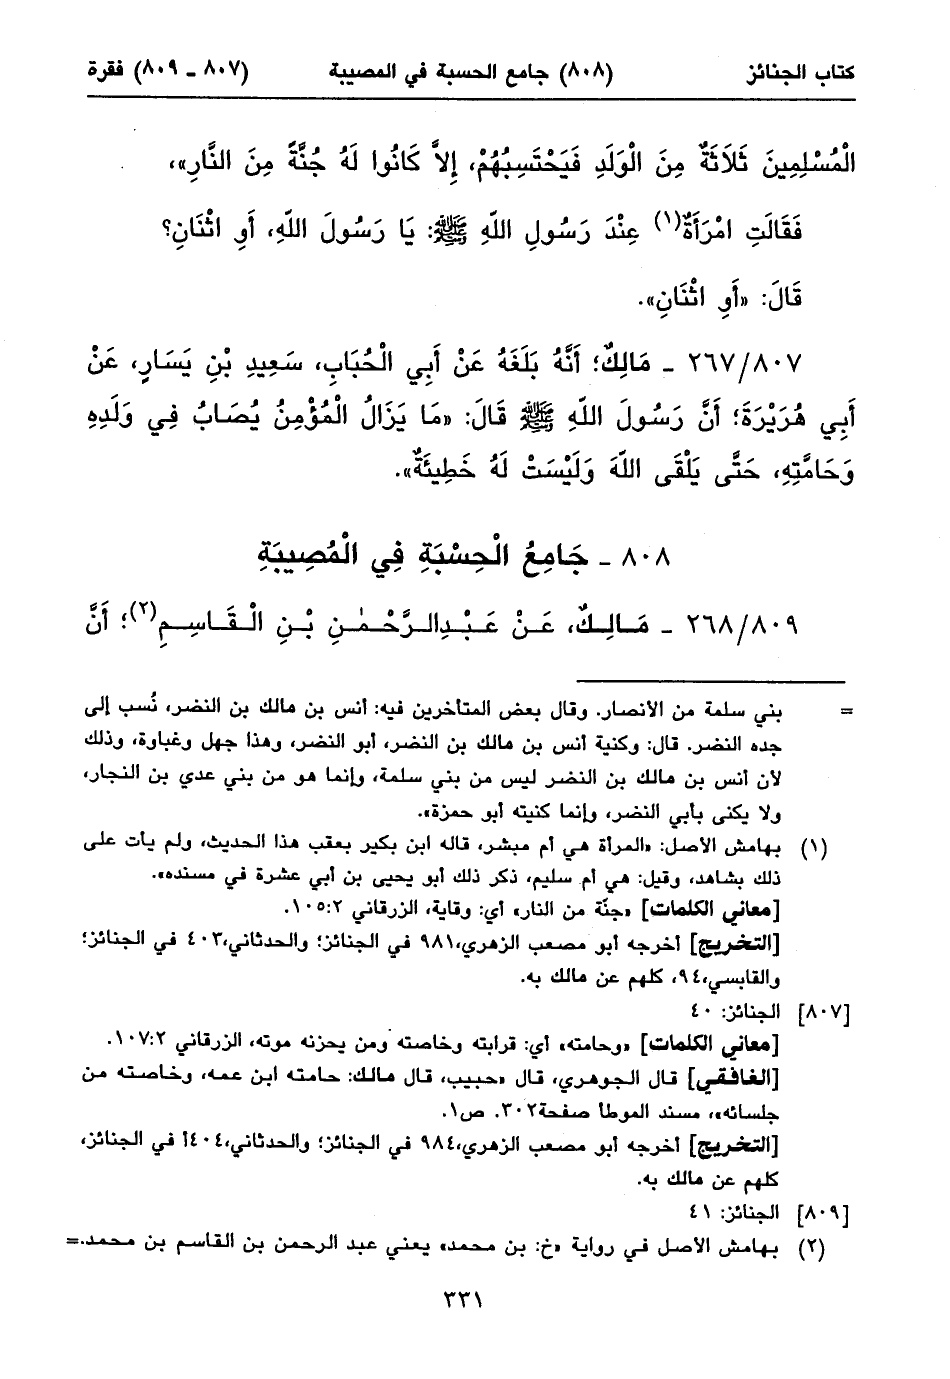 كتاب الجنائز (٨٠٨) جامع الحسبة في المصيبة (٨٠٧ ـ ٨٠٩) فقرة
الْمُسْلِمِينَ ثَلَاثَةٌ مِنَ الْوَلَدِ فَيَحْتَسِبُهُمْ، إِلاَّ كَانُوا لَهُ جُنَّةً مِنَ النَّارِ»،
فَقَالَتِ امْرَأَةٌ(١) عِنْدَ رَسُولِ اللّهِ ﷺ: يَا رَسُولَ اللّهِ، أَوِ اثْنَانِ؟
قَالَ: «أَوِ اثْنَانِ».
٢٦٧/٨٠٧ ـ مَالِكٌ؛ أَنَّهُ بَلَغَهُ عَنْ أَبِي الْحُبَابِ، سَعِيدِ بْنِ يَسَارٍ، عَنْ
أَبِي هُرَيْرَةَ؛ أَنَّ رَسُولَ اللّهِ ﷺ قَالَ: «مَا يَزَالُ الْمُؤْمِنُ يُصَابُ فِي وَلَدِهِ
وَحَامَّتِهِ، حَتَّى يَلْقَى اللّهَ وَلَيْسَتْ لَهُ خَطِيئَةٌ».
٨٠٨ ـ جَامِعُ الْحِسْبَةِ فِي الْمُصِيبَةِ
٢٦٨/٨٠٩ ـ مَالِكٌ، عَنْ عَبْدِالرَّحْمٰنِ بْنِ الْقَاسِمِ(٢)؛ أَنَّ
= بني سلمة من الأنصار. وقال بعض المتأخرين فيه: أنس بن مالك بن النضر، نُسب إلى
جده النضر. قال: وكنية أنس بن مالك بن النضر، أبو النضر، وهذا جهل وغبارة، وذلك
لأن أنس بن مالك بن النضر ليس من بني سلمة، وإنما هو من بني عدي بن النجار،
ولا يكنى بأبي النضر، وإنما كنيته أبو حمزة».
(١) بهامش الأصل: «المرأة هي أم مبشر، قاله ابن بكير بعقب هذا الحديث، ولم يأت على
ذلك بشاهد، وقيل: هي أم سليم، ذكر ذلك أبو يحيى بن أبي عشرة في مسنده».
[معاني الكلمات] «جنّة من النار» أي: وقاية، الزرقاني ١٠٥:٢.
[التخريج] أخرجه أبو مصعب الزهري،٩٨١ في الجنائز؛ والحدثاني،٤٠٣ في الجنائز؛
والقابسي،٩٤، كلهم عن مالك به.
[٨٠٧] الجنائز: ٤٠
[معاني الكلمات] «وحامته» أي: قرابته وخاصته ومن يحزنه موته، الزرقاني ١٠٧:٢.
[الغافقي] قال الجوهري، قال «حبيب، قال مالك: حامته ابن عمه، وخاصته من
جلسائه»، مسند الموطأ صفحة٣٠٢. ص١.
[التخريج] أخرجه أبو مصعب الزهري،٩٨٤ في الجنائز؛ والحدثاني،٤٠٤أ في الجنائز،
كلهم عن مالك به.
[٨٠٩] الجنائز: ٤١
(٢) بهامش الأصل في رواية «خ: بن محمد» يعني عبد الرحمن بن القاسم بن محمد.=
٣٣١